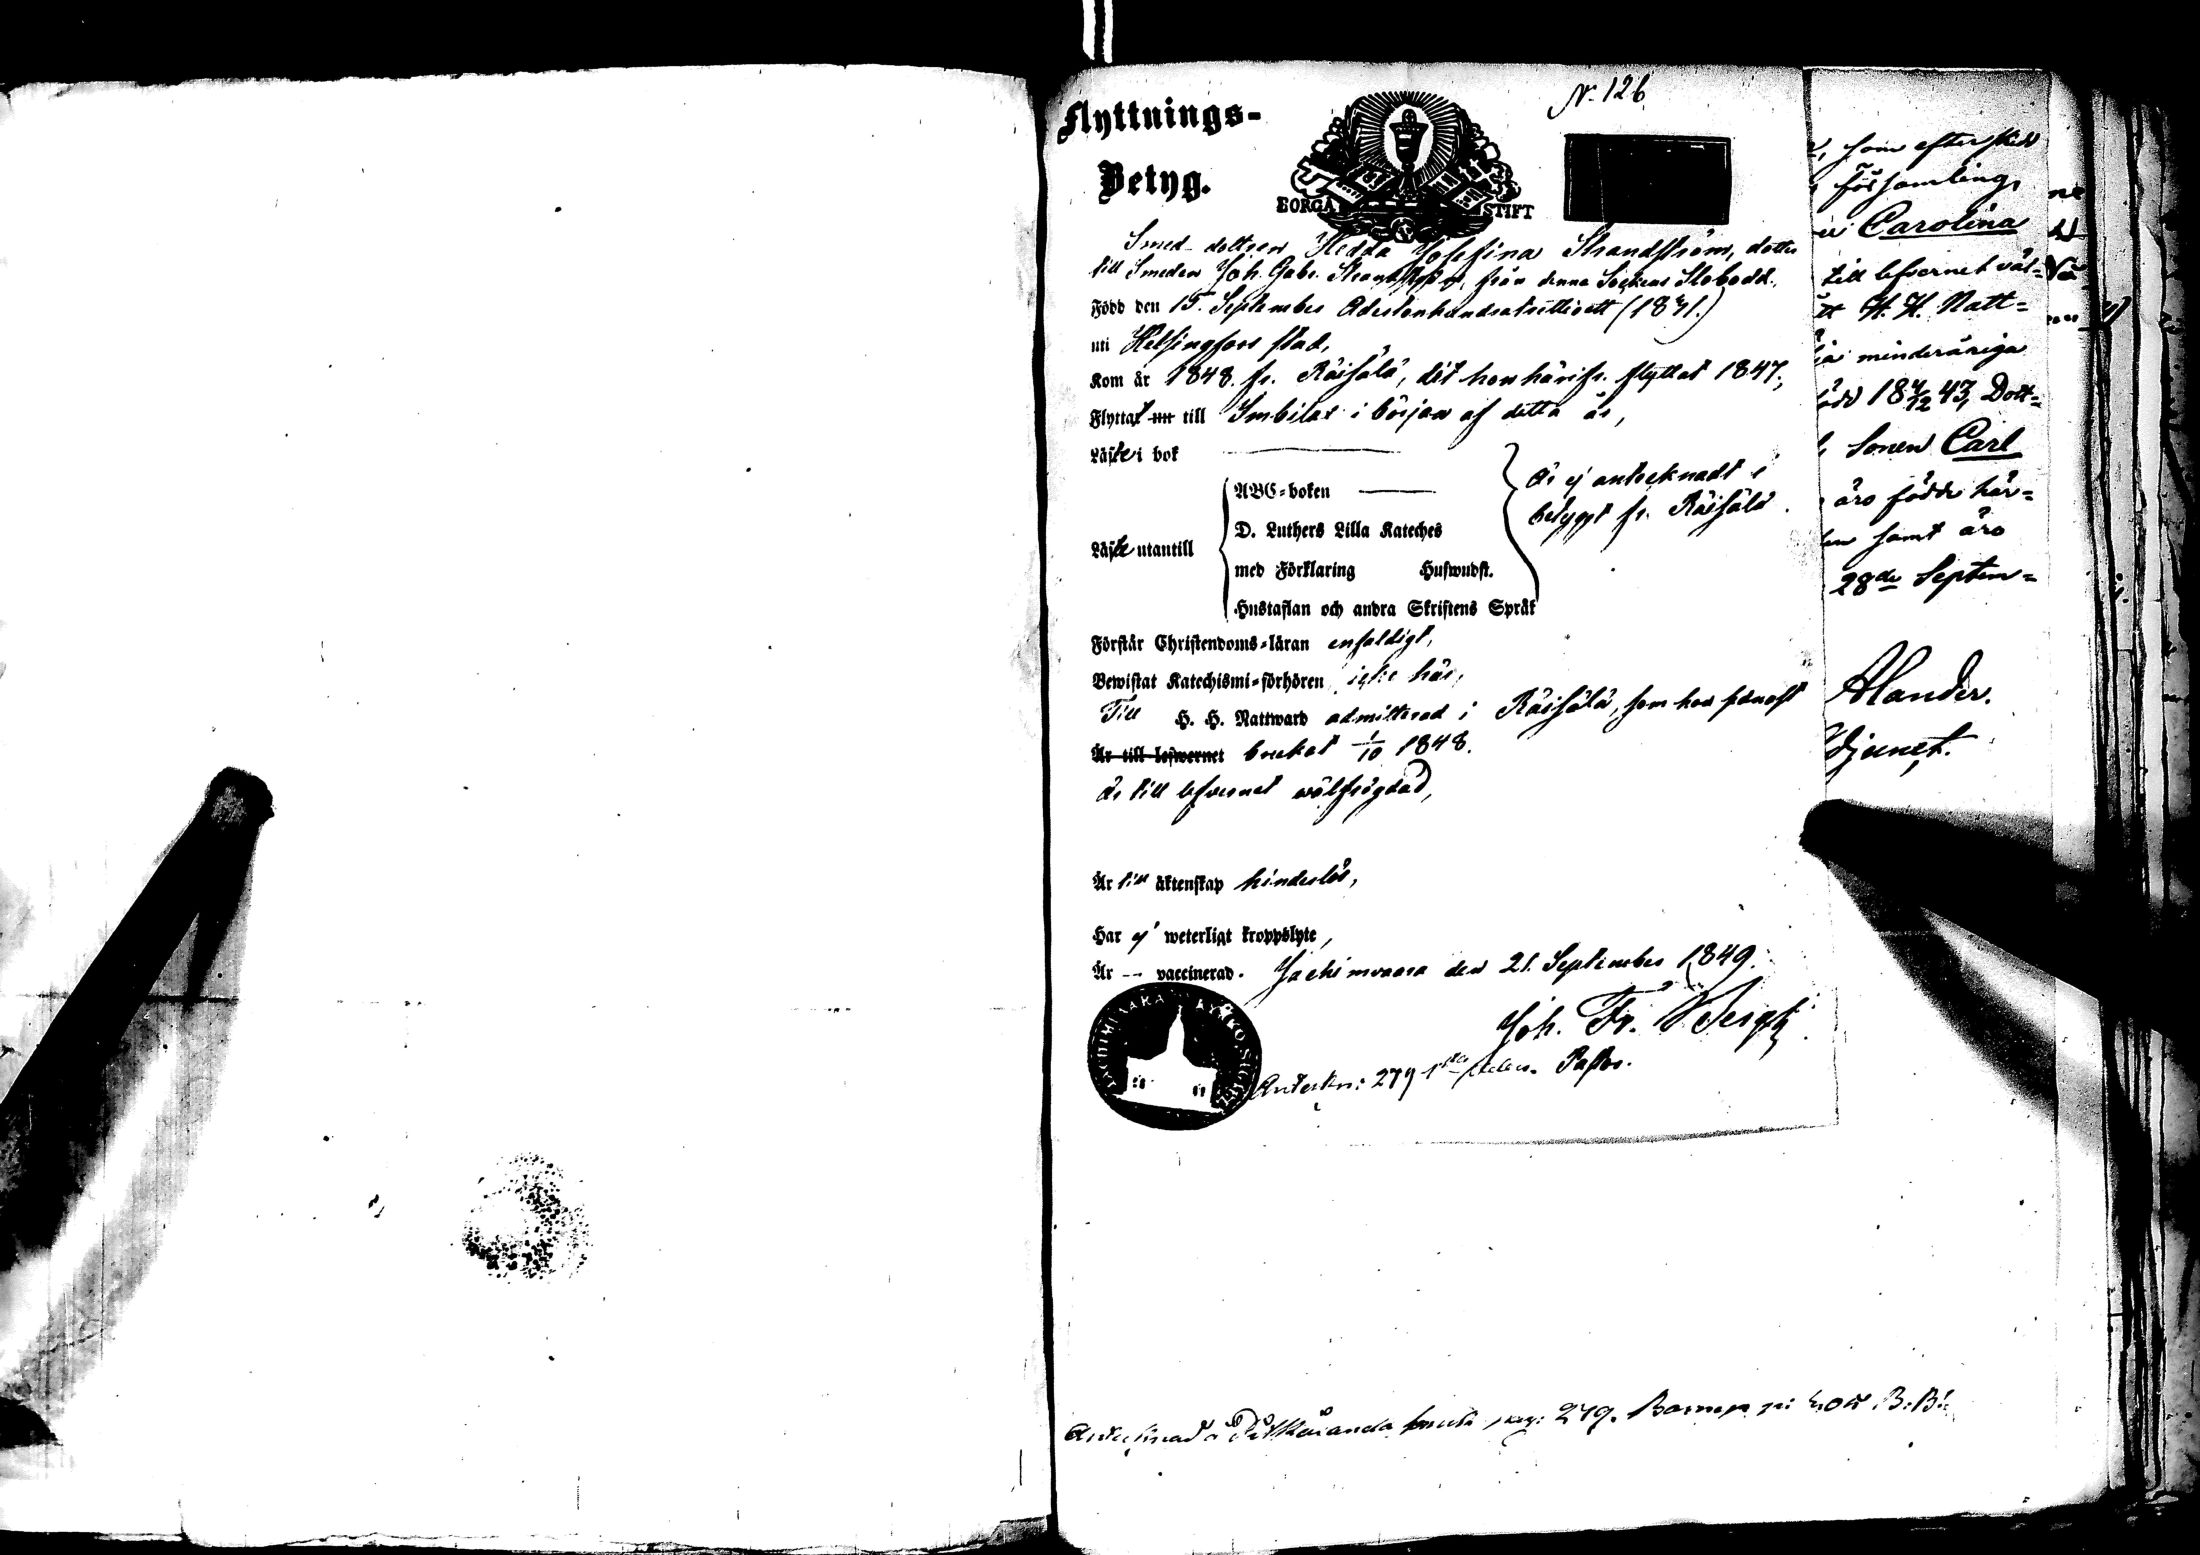 N. 126
Flyttnings-
Betyg.
BORGÅ STIFT
Smed-dottren Hedda Josefina Strandström, dotter
till Smeden Joh. Gabr. Strandström, från denna Sockens Slobodd.,
Född den 15. September Adertonhundratrettioett (1831.)
uti Helsingfors stad,
Kom år 1848. fr. Räisälä, dit hon härifr. flyttat 1847.,
Flyttat nu till Imbilax i början af detta år,
Läste i bok
ABC-boken
är ej antecknadt i
betyget fr. Räisälä.
D. Luthers Lilla Kateches
Läste utantill
med Förklaring Hufwudst.
Hustaflan och andra Skriftens Språk
Förstår Christendoms-läran enfaldigt,
Bewistat Katechismi-förhören icke här,
Till H. H. Nattward admitterad i Räisälä, som hon senast
Är till lefwernet brukat 1/10 1848.
är till lefvernet välfrägdad,
Är till äktenskap hinderlös,
Har ej weterligt kroppslyte,
Är -- vaccinerad. Jachimvaara den 21. September 1849.
Joh. Fr. Bergh
Pastor.
Anteckn: 279
Antecknad å Pitkäranda pag: 279. B.B.
som efterskild
församling
Carolina
till lefvernet väl-
H. H. Natt-
minderåriga
född 18 4/12 43, Dott-
Sonen Carl
äro födde här-
samt äro
28de Septem-
Alander.